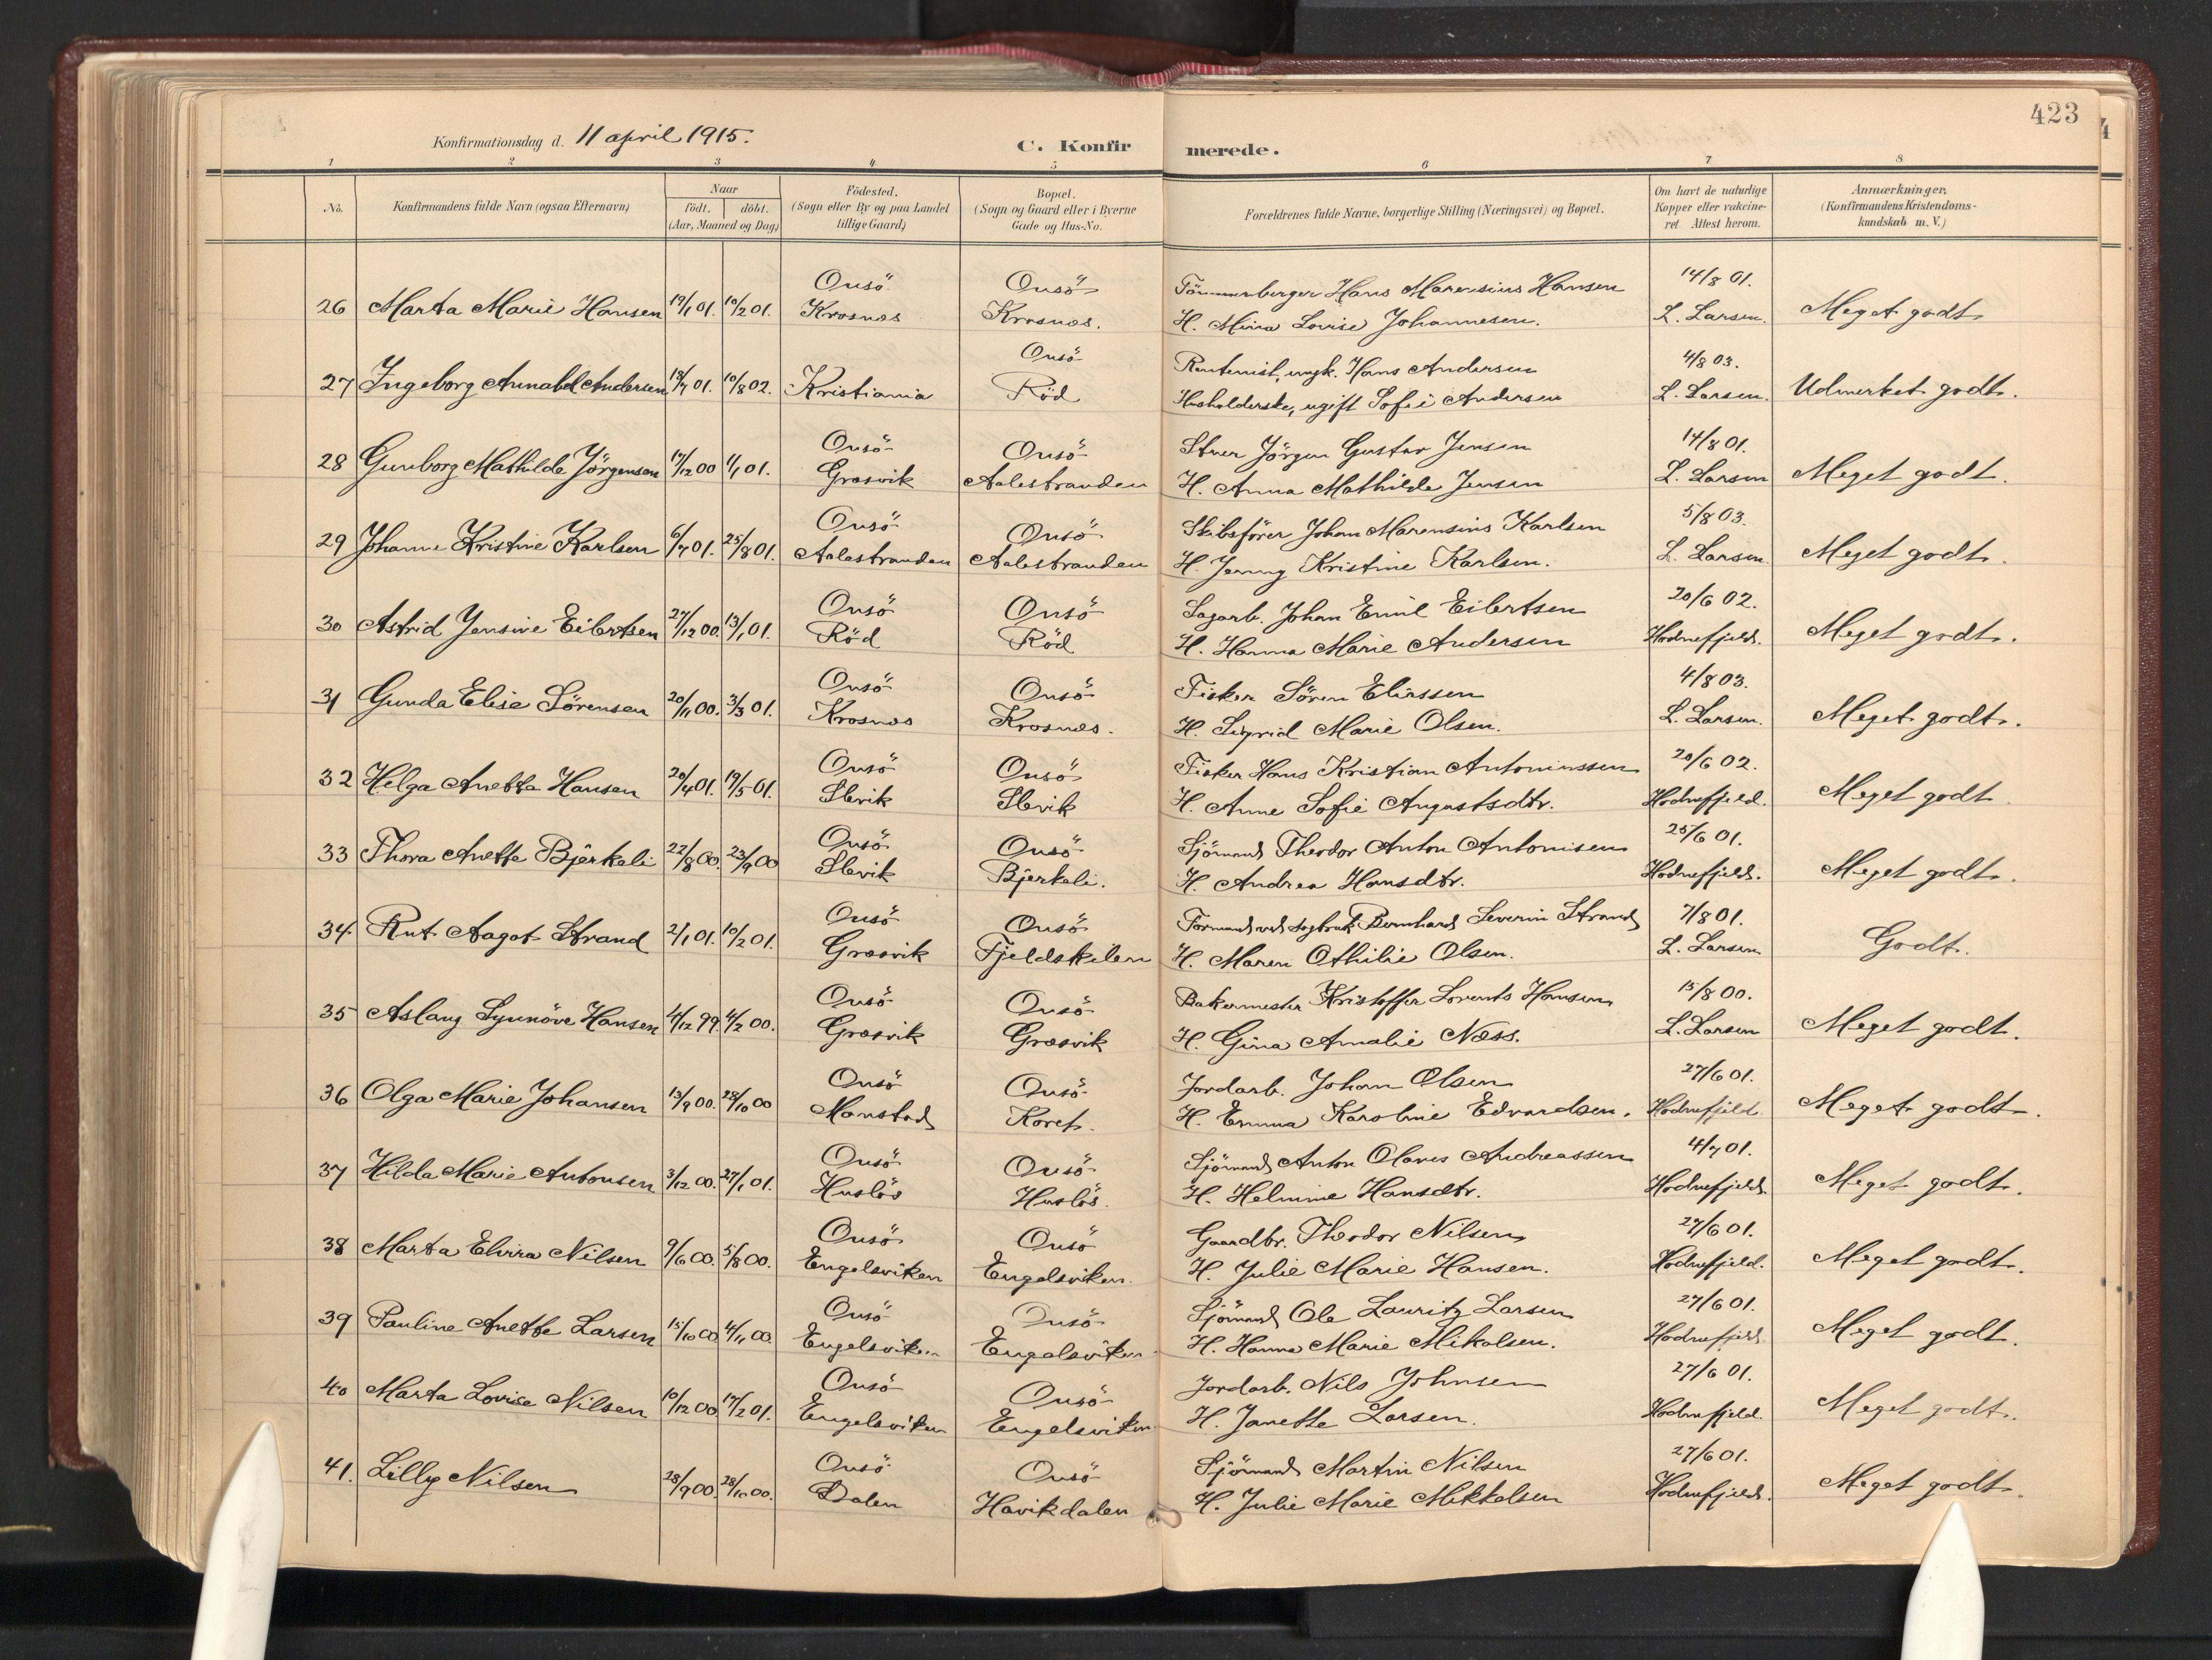 423
Konfirmationsdag d. 11 april 1915.
C. Konfirmerede.
1 2 3 4 5 6 7 8
No.
Konfirmandens fulde Navn (ogsaa Efternavn)
Naar
födt. döbt.
(Aar, Maaned og Dag)
Födested.
(Sogn eller By og paa Landet
tillige Gaard)
Bopæl.
(Sogn og Gaard eller i Byerne
Gade og Hus-No.
Forældrenes fulde Navne, borgerlige Stilling (Næringsvei) og Bopæl.
Om havt de naturlige
Kopper eller vakcine-
ret. Attest herom.
Anmærkninger.
(Konfirmandens Kristendoms-
kundskab m. V.)
Onsö Onsö Tömmerberger Hans Marensius Hansen 14/8 01.
26 Marta Marie Hansen 19/1 01. 10/2 01. Krosnæs Krosnæs. H. Mina Lovise Johannesen. L. Larsen. Meget godt
Onsö Rentenist, ungk. Hans Andersen 4/8 03.
27 Ingeborg Annabel Andersen 18/7 01. 10/8 02. Kristiania Röd Husholderske, ugift Sofie Andersen L. Larsen. Udmerket godt.
Onsö Onsö Stuer Jörgen Gustav Jensen 14/8 01.
28 Gunborg Mathilde Jörgensen 17/12 00 1/1 01. Græsvik Aalestranden H. Anna Mathilde Jensen L. Larsen Meget godt.
Onsö Onsö Skibsförer Johan Marensius Karlsen 5/8 03.
29 Johanne Kristine Karlsen 6/7 01. 25/8 01. Aalestranden Aalestranden H. Jenny Kristine Karlsen. L. Larsen. Meget godt.
Onsö Onsö Sagarb. Johan Emil Eilertsen 20/6 02.
30 Astrid Jensine Eilertsen 27/12 00. 13/1 01. Röd Röd H. Hanna Marie Andersen Hodnefjeld. Meget godt.
Onsö Onsö Fisker Sören Eliassen 4/8 03.
31 Gunda Elise Sörensen 20/11 00. 3/3 01. Krosnæs Krosnæs. H. Sigrid Marie Olsen. L. Larsen. Meget godt.
Onsö Onsö Fisker Hans Kristian Antoniussen 20/6 02.
32 Helga Anette Hansen 20/4 01. 19/5 01. Slevik Slevik H. Anne Sofie Augustsdtr. Hodnefjeld. Meget godt
Onsö Onsö Sjömand Theodor Anton Antonisen 25/6 01.
33 Thora Anette Bjerkeli 22/8 00. 23/9 00 Slevik Bjerkeli. H. Andrea Hansdtr. Hodnefjeld. Meget godt.
Onsö Onsö Formand ved sagbruk Bernhard Severin Strand 7/8 01.
34 Rut Aagot Strand 2/1 01. 10/2 01. Græsvik Fjeldskilen H. Maren Othilie Olsen. L. Larsen Godt.
Onsö Onsö Bakermester Kristoffer Lorents Hansen 15/8 00.
35 Aslaug Synnöve Hansen 4/12 99. 4/2 00. Græsvik Græsvik H. Gina Amalie Næss. L. Larsen Meget godt.
Onsö Onsö Jordarb. Johan Olsen 27/6 01.
36 Olga Marie Johansen 13/9 00. 28/10 00 Monstad Koret. H. Emma Karoline Edvardsen. Hodnefjeld Meget godt.
Onsö Onsö Sjömand Anton Olaves Andreassen 4/7 01.
37 Hilda Marie Antonsen 3/12 00. 27/1 01. Huslös Huslös. H. Helmine Hansdtr. Hodnefjeld. Meget godt.
Onsö Onsö Gaardbr. Theodor Nilsen 27/6 01.
38 Marta Elvira Nilsen 9/6 00. 5/8 00. Engelsviken Engelsviken. H. Julie Marie Hansen. Hodnefjeld. Meget godt.
Onsö Onsö Sjömand Ole Lauritz Larsen 27/6 01.
39 Pauline Anette Larsen 15/10 00 4/11 00. Engelsviken Engelsviken H. Hanna Marie Mikalsen. Hodnefjeld. Meget godt.
Onsö Onsö Jordarb. Nils Johnsen 27/6 01.
40 Marta Lovise Nilsen 10/12 00 17/2 01. Engelsviken Engelsviken H. Janette Larsen. Hodnefjeld. Meget godt.
Onsö Onsö Sjömand Martin Nilsen 27/6 01.
41. Lilly Nilsen 28/9 00. 28/10 00. Dalen Havikdalen H. Julie Marie Mikkelsen Hodnefjeld. Meget godt.